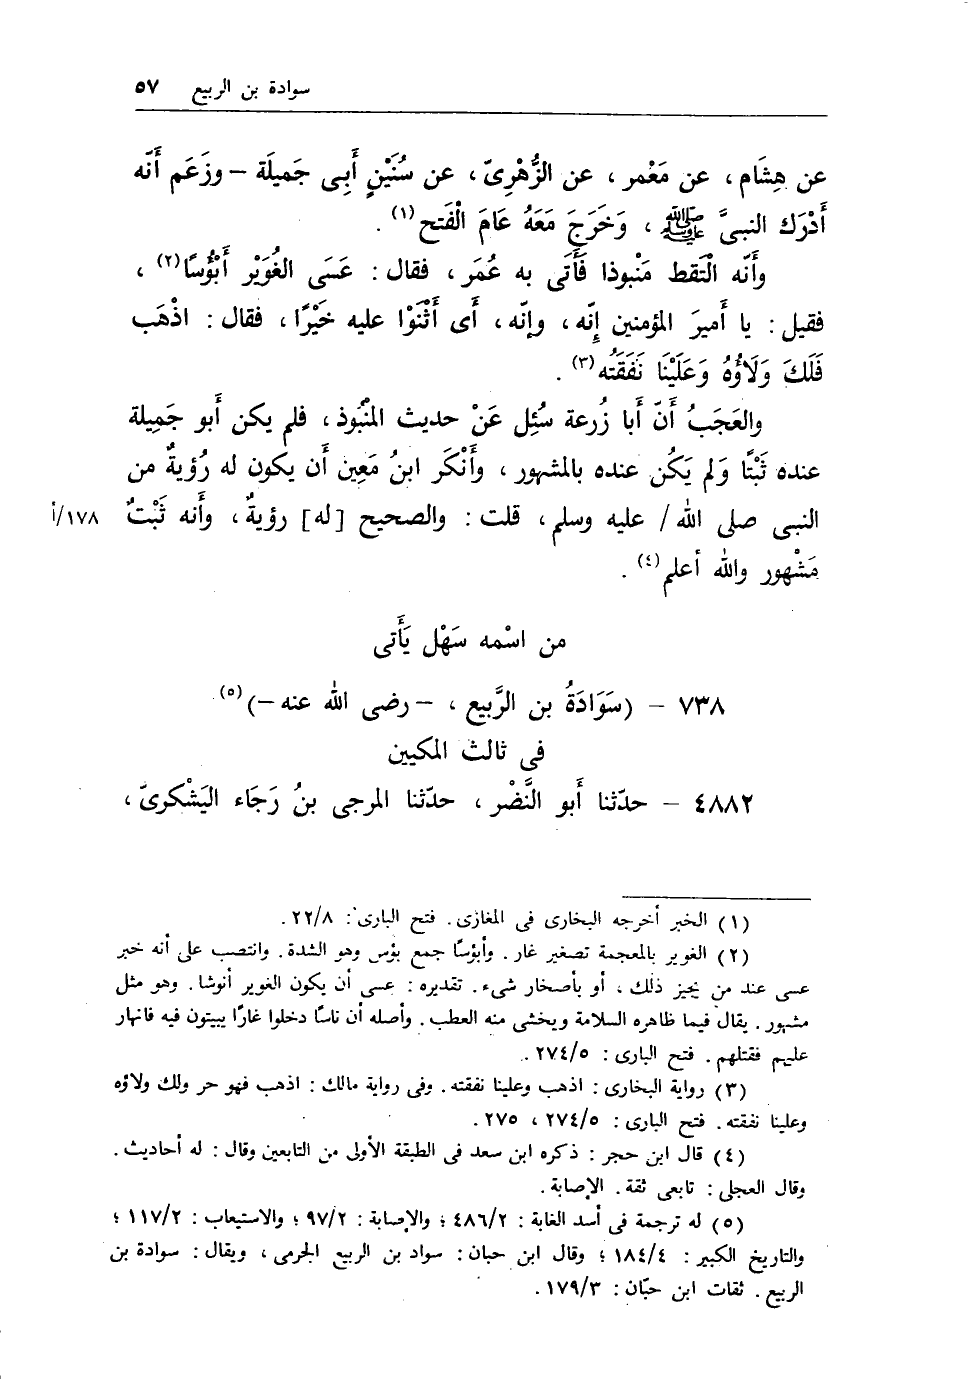 سوادة بن الربيع ٥٧
عن هِشَام ، عن مَعْمر ، عن الزُّهْرِىّ ، عن سُنَيْنٍ أَبِى جَميلَة – وزَعَم أَنّه
أَدْرَك النبىَّ ﷺ ، وَخَرَجَ مَعَهُ عَامَ الْفَتح(١) .
وأَنّه الْتَقط مَنْبوذا فَأَتَى به عُمَر ، فقال : عَسَى الغُوَيْر أَبْؤُسًا(٢) ،
فقيل : يا أميرَ المؤمنين إِنّه ، وإنّه ، أى أَثْنَوْا عليه خَيْرًا ، فقال : اذْهَب
فَلَكَ وَلَاؤُهُ وَعَلَيْنَا نَفَقَتُه(٣) .
والعَجَبُ أَنّ أَبا زُرعة سُئِل عَنْ حديث المَنْبُوذ ، فلم يكن أَبو جَمِيلة
عنده ثَبْتًا وَلم يَكُن عنده بالمشهور ، وأَنْكَر ابنُ مَعِين أَن يكون له رُؤيةٌ من
النبى صلى الله/ عليه وسلم ، قلت : والصحيح [له] رؤيةٌ ، وأَنه ثَبْتٌ ١٧٨/أ
مَشْهور والله أعلم(٤) .
من اسْمه سَهْل يَأَتى
٧٣٨ – (سَوَادَةُ بن الرَّبيع ، – رضى الله عنه –)(٥)
فى ثالث المكيين
٤٨٨٢ – حدّثنا أَبو النَّضْر ، حدّثنا المرجى بنُ رَجَاء اليَشْكرىّ ،
(١) الخبر أخرجه البخارى فى المغازى . فتح البارى : ٢٢/٨ .
(٢) الغوير بالمعجمة تصغير غار . وأبؤسًا جمع بؤس وهو الشدة . وانتصب على أنه خبر
عسى عند من يجيز ذلك ، أو بأضخار شىء . تقديره : عسى أن يكون الغوير أنوشا . وهو مثل
مشهور . يقال فيما ظاهره السلامة ويخشى منه العطب . وأصله أن ناسًا دخلوا غارًا يبيتون فيه فانهار
عليهم فقتلهم . فتح البارى : ٢٧٤/٥ .
(٣) رواية البخارى : اذهب وعلينا نفقته . وفى رواية مالك : اذهب فهو حر ولك ولاؤه
وعلينا نفقته . فتح البارى : ٢٧٤/٥ ، ٢٧٥ .
(٤) قال ابن حجر : ذكره ابن سعد فى الطبقة الأولى من التابعين وقال : له أحاديث .
وقال العجلى : تابعى ثقة . الإصابة .
(٥) له ترجمة فى أسد الغابة : ٤٨٦/٢ ؛ والإصابة : ٩٧/٢ ؛ والاستيعاب : ١١٧/٢ ؛
والتاريخ الكبير : ١٨٤/٤ ؛ وقال ابن حبان : سواد بن الربيع الجرمى ، ويقال : سوادة بن
الربيع . ثقات ابن حبّان : ١٧٩/٣ .